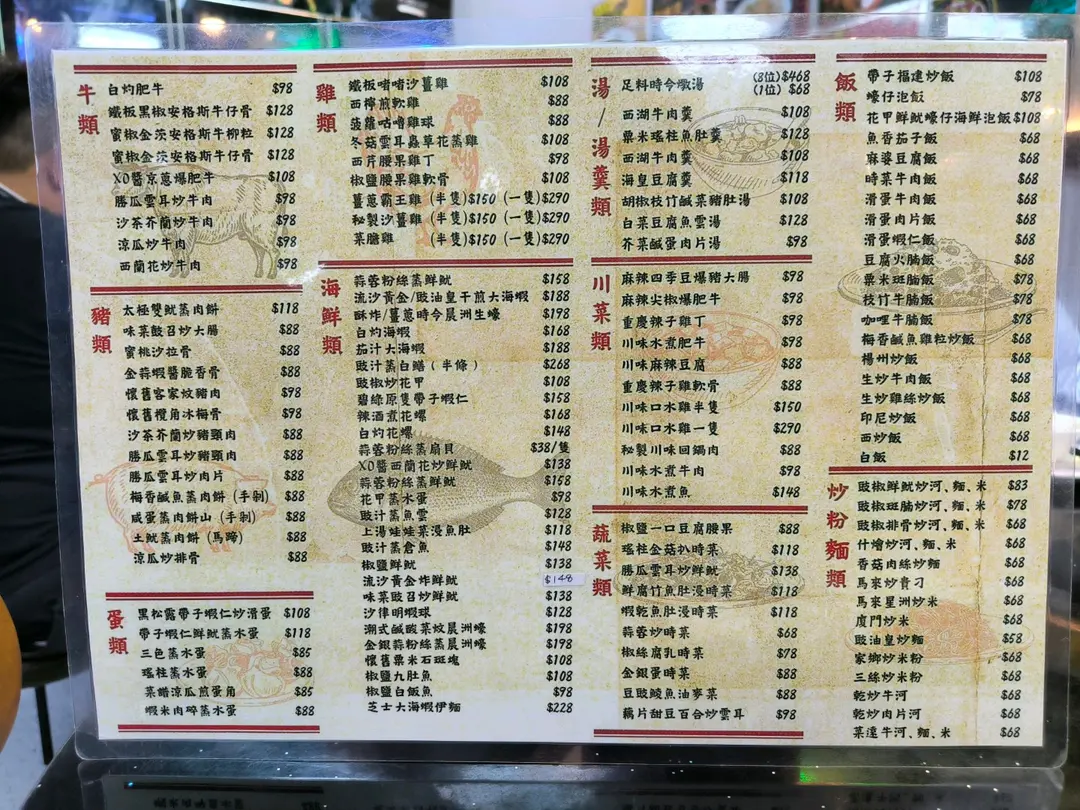 牛類
白灼肥牛 $98
鐵板黑椒安格斯牛仔骨 $128
蜜椒金茨安格斯牛柳粒 $128
蜜椒金茨安格斯牛仔骨 $128
XO醬京蔥爆肥牛 $108
勝瓜雲耳炒牛肉 $98
沙茶芥蘭炒牛肉 $98
涼瓜炒牛肉 $98
西蘭花炒牛肉 $98
豬類
太極雙魷蒸肉餅 $118
味菜豉召炒大腸 $88
蜜桃沙拉骨 $88
金蒜蝦醬脆香骨 $88
懷舊客家炆豬肉 $98
懷舊欖角冰梅骨 $98
沙茶芥蘭炒豬頸肉 $88
勝瓜雲耳炒豬頸肉 $88
勝瓜雲耳炒肉片 $88
梅香鹹魚蒸肉餅(手剁) $88
咸蛋蒸肉餅山(手剁) $88
土魷蒸肉餅(馬蹄) $88
涼瓜炒排骨 $88
蛋類
黑松露帶子蝦仁炒滑蛋 $108
帶子蝦仁鮮魷蒸水蛋 $118
三色蒸水蛋 $85
瑤柱蒸水蛋 $88
菜甫涼瓜煎蛋角 $85
蝦米肉碎蒸水蛋 $88
雞類
鐵板啫啫沙薑雞 $108
西檸煎軟雞 $88
菠蘿咕嚕雞球 $88
冬菇雲耳蟲草花蒸雞 $108
西芹腰果雞丁 $98
椒鹽腰果雞軟骨 $108
薑蔥霸王雞 (半隻)$150 (一隻)$290
秘製沙薑雞 (半隻)$150 (一隻)$290
菜膽雞 (半隻)$150 (一隻)$290
海鮮類
蒜蓉粉絲蒸鮮魷 $158
流沙黃金/豉油皇干煎大海蝦 $188
酥炸/薑蔥時令晨洲生蠔 $198
白灼海蝦 $168
茄汁大海蝦 $188
豉汁蒸白鱔(半條) $268
豉椒炒花甲 $108
碧綠原隻帶子蝦仁 $158
辣酒煮花螺 $168
白灼花螺 $148
蒜蓉粉絲蒸扇貝 $38/隻
XO醬西蘭花炒鮮魷 $138
蒜蓉粉絲蒸鮮魷 $158
花甲蒸水蛋 $98
豉汁蒸魚雲 $128
上湯娃娃菜浸魚肚 $118
豉汁蒸倉魚 $148
椒鹽鮮魷 $138
流沙黃金炸鮮魷 $148
味菜豉召炒鮮魷 $138
沙律明蝦球 $128
潮式鹹酸菜炆晨洲蠔 $198
金銀蒜粉絲蒸晨洲蠔 $198
懷舊粟米石斑塊 $108
椒鹽九肚魚 $108
椒鹽白飯魚 $98
芝士大海蝦伊麵 $228
湯/湯羹類
足料時令燉湯 (8位)$468
(1位) $68
西湖牛肉羹 $108
粟米瑤柱魚肚羹 $128
西湖牛肉羹 $108
海皇豆腐羹 $118
胡椒枝竹鹹菜豬肚湯 $108
白菜豆腐魚雲湯 $128
芥菜鹹蛋肉片湯 $98
川菜類
麻辣四季豆爆豬大腸 $98
麻辣尖椒爆肥牛 $98
重慶辣子雞丁 $98
川味水煮肥牛 $98
川味麻辣豆腐 $88
重慶辣子雞軟骨 $88
川味口水雞半隻 $150
川味口水雞一隻 $290
秘製川味回鍋肉 $88
川味水煮牛肉 $98
川味水煮魚 $148
蔬菜類
椒鹽一口豆腐腰果 $88
瑤柱金菇扒時菜 $118
勝瓜雲耳炒鮮魷 $138
鮮腐竹魚肚浸時菜 $118
蝦乾魚肚浸時菜 $118
蒜蓉炒時菜 $68
椒絲腐乳時菜 $78
金銀蛋時菜 $88
豆豉鯪魚油麥菜 $88
藕片甜豆百合炒雲耳 $98
飯類
帶子福建炒飯 $108
蠔仔泡飯 $78
花甲鮮魷蠔仔海鮮泡飯 $108
魚香茄子飯 $68
麻婆豆腐飯 $68
時菜牛肉飯 $68
滑蛋牛肉飯 $68
滑蛋肉片飯 $68
滑蛋蝦仁飯 $68
豆腐火腩飯 $68
粟米斑腩飯 $78
枝竹牛腩飯 $78
咖喱牛腩飯 $78
梅香鹹魚雞粒炒飯 $68
楊州炒飯 $68
生炒牛肉飯 $68
生炒雞絲炒飯 $68
印尼炒飯 $68
西炒飯 $68
白飯 $12
炒粉麵類
豉椒鮮魷炒河、麵、米 $83
豉椒斑腩炒河、麵、米 $78
豉椒排骨炒河、麵、米 $68
什燴炒河、麵、米 $68
香菇肉絲炒麵 $68
馬來炒貴刁 $68
馬來星洲炒米 $68
廈門炒米 $68
豉油皇炒麵 $58
家鄉炒米粉 $68
三絲炒米粉 $68
乾炒牛河 $68
乾炒肉片河 $68
菜遠牛河、麵、米 $68